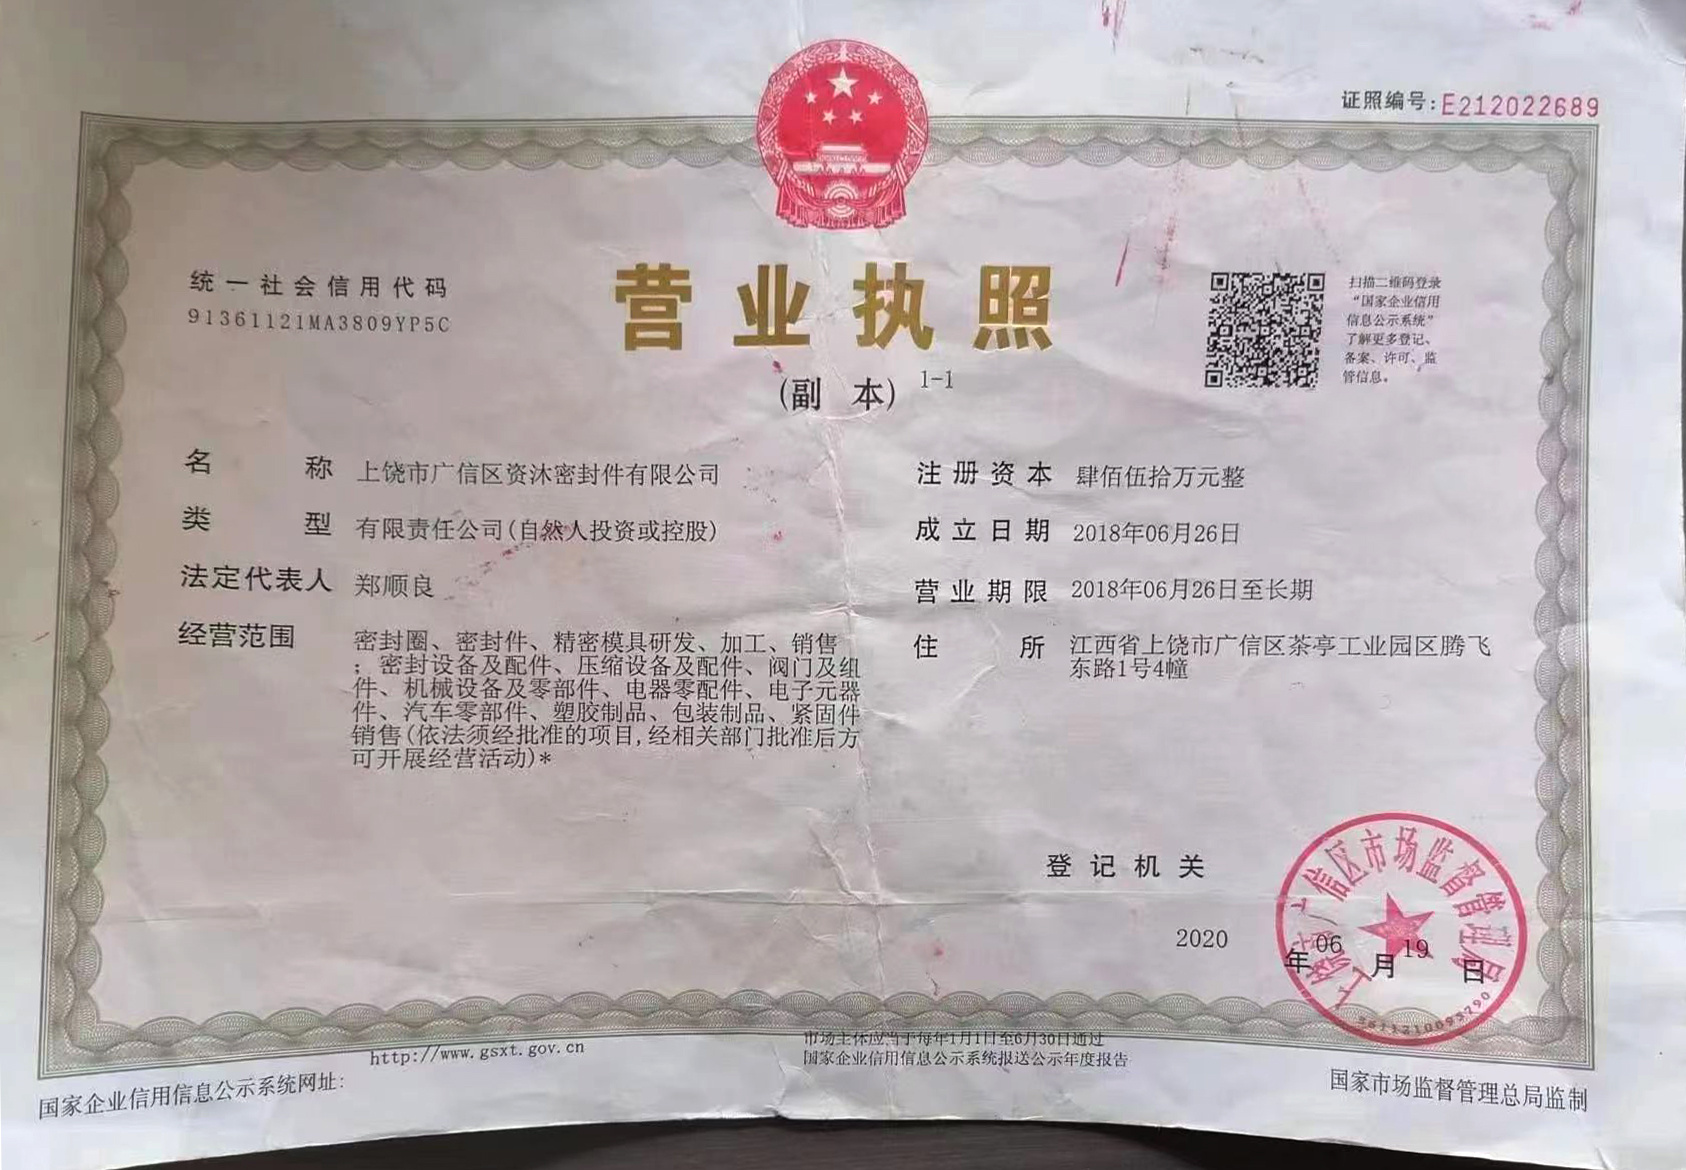 证照编号:E212022689
统一社会信用代码
91361121MA3809YP5C
营业执照
(副 本) 1-1
扫描二维码登录
“国家企业信用
信息公示系统”
了解更多登记、
备案、许可、监
管信息。
名 称 上饶市广信区资沐密封件有限公司
类 型 有限责任公司(自然人投资或控股)
法定代表人 郑顺良
经营范围 密封圈、密封件、精密模具研发、加工、销售
;密封设备及配件、压缩设备及配件、阀门及组
件、机械设备及零部件、电器零配件、电子元器
件、汽车零部件、塑胶制品、包装制品、紧固件
销售(依法须经批准的项目,经相关部门批准后方
可开展经营活动)*
注册资本 肆佰伍拾万元整
成立日期 2018年06月26日
营业期限 2018年06月26日至长期
住 所 江西省上饶市广信区茶亭工业园区腾飞
东路1号4幢
登记机关
2020 年 06 月 19 日
信区市场监督管理局
http://www.gsxt.gov.cn
国家企业信用信息公示系统网址:
市场主体应当于每年1月1日至6月30日通过
国家企业信用信息公示系统报送公示年度报告
国家市场监督管理总局监制